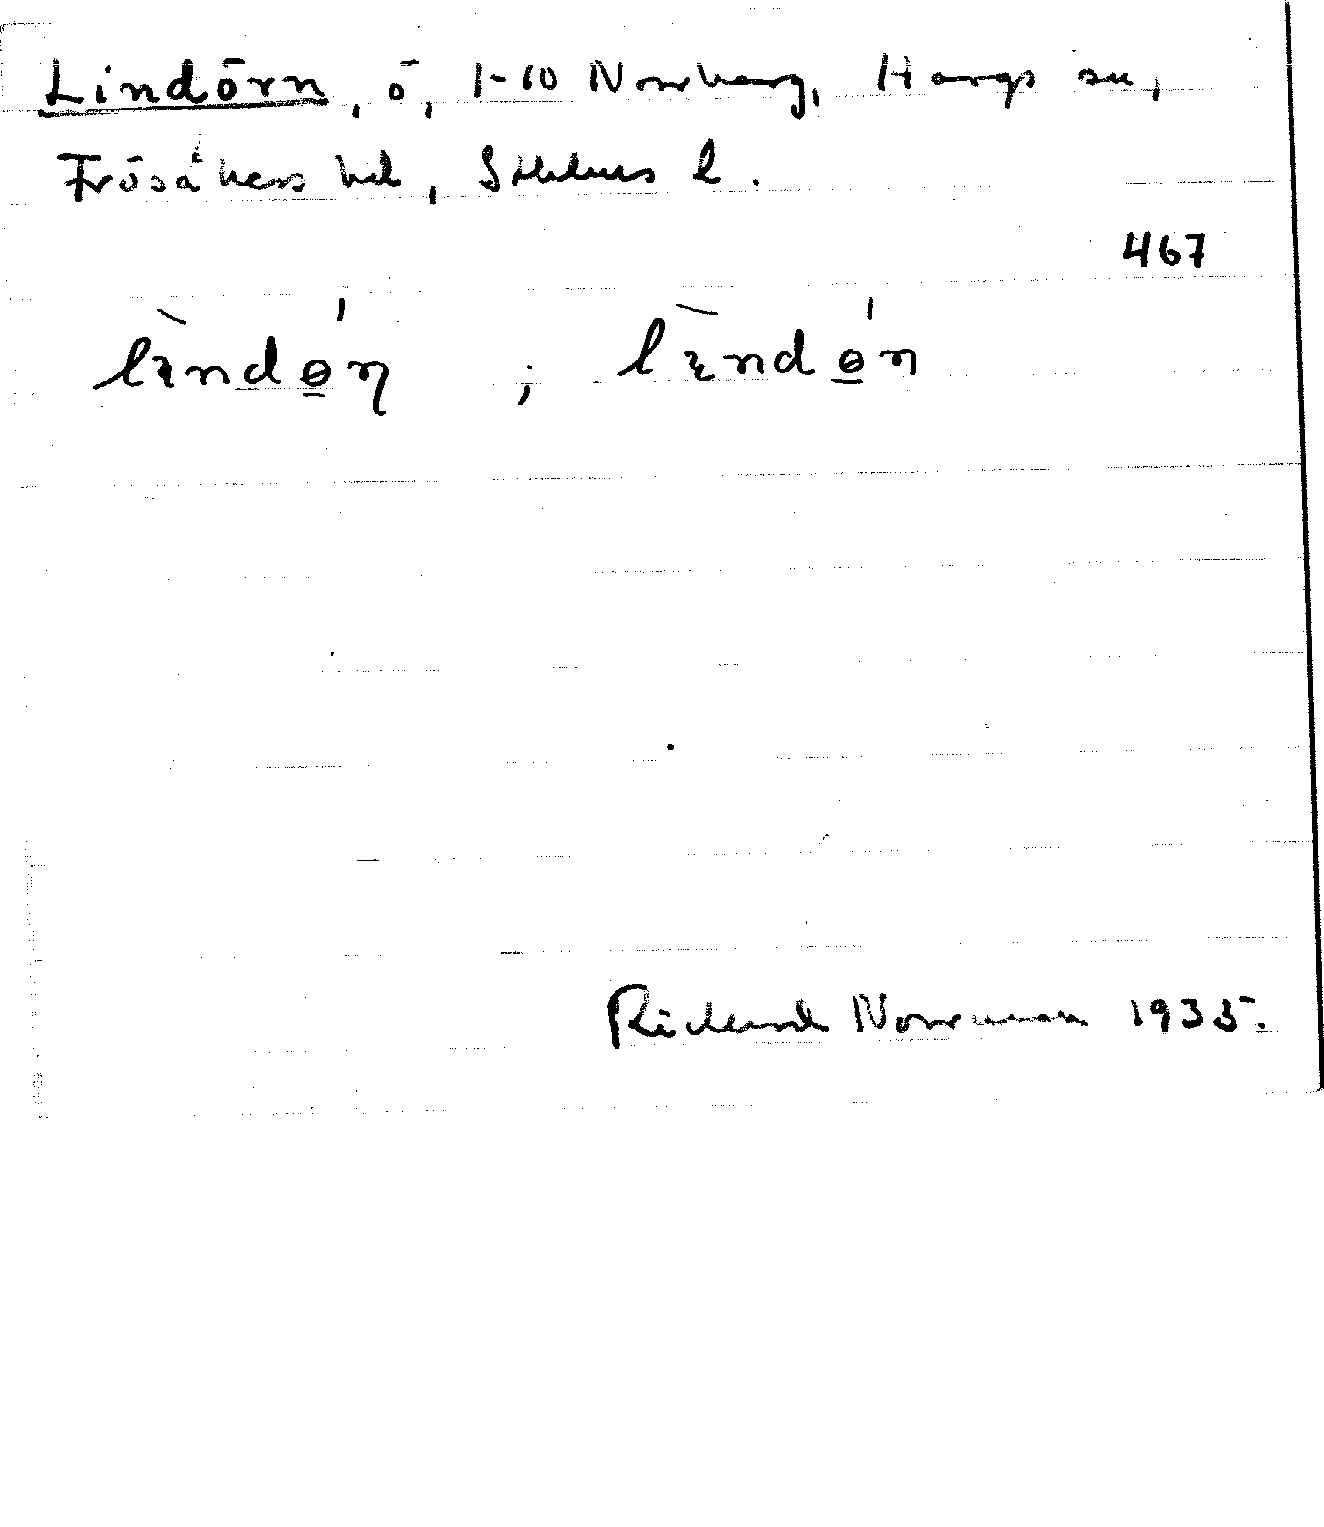 Lindörn, ö, 1-10 Norrberg, Hargs sn,
Frösåkers hd, Sthlms l.
467
lìndɵ̲́ɳ ; lìndɵ̲́n
Richard Norrman 1935.